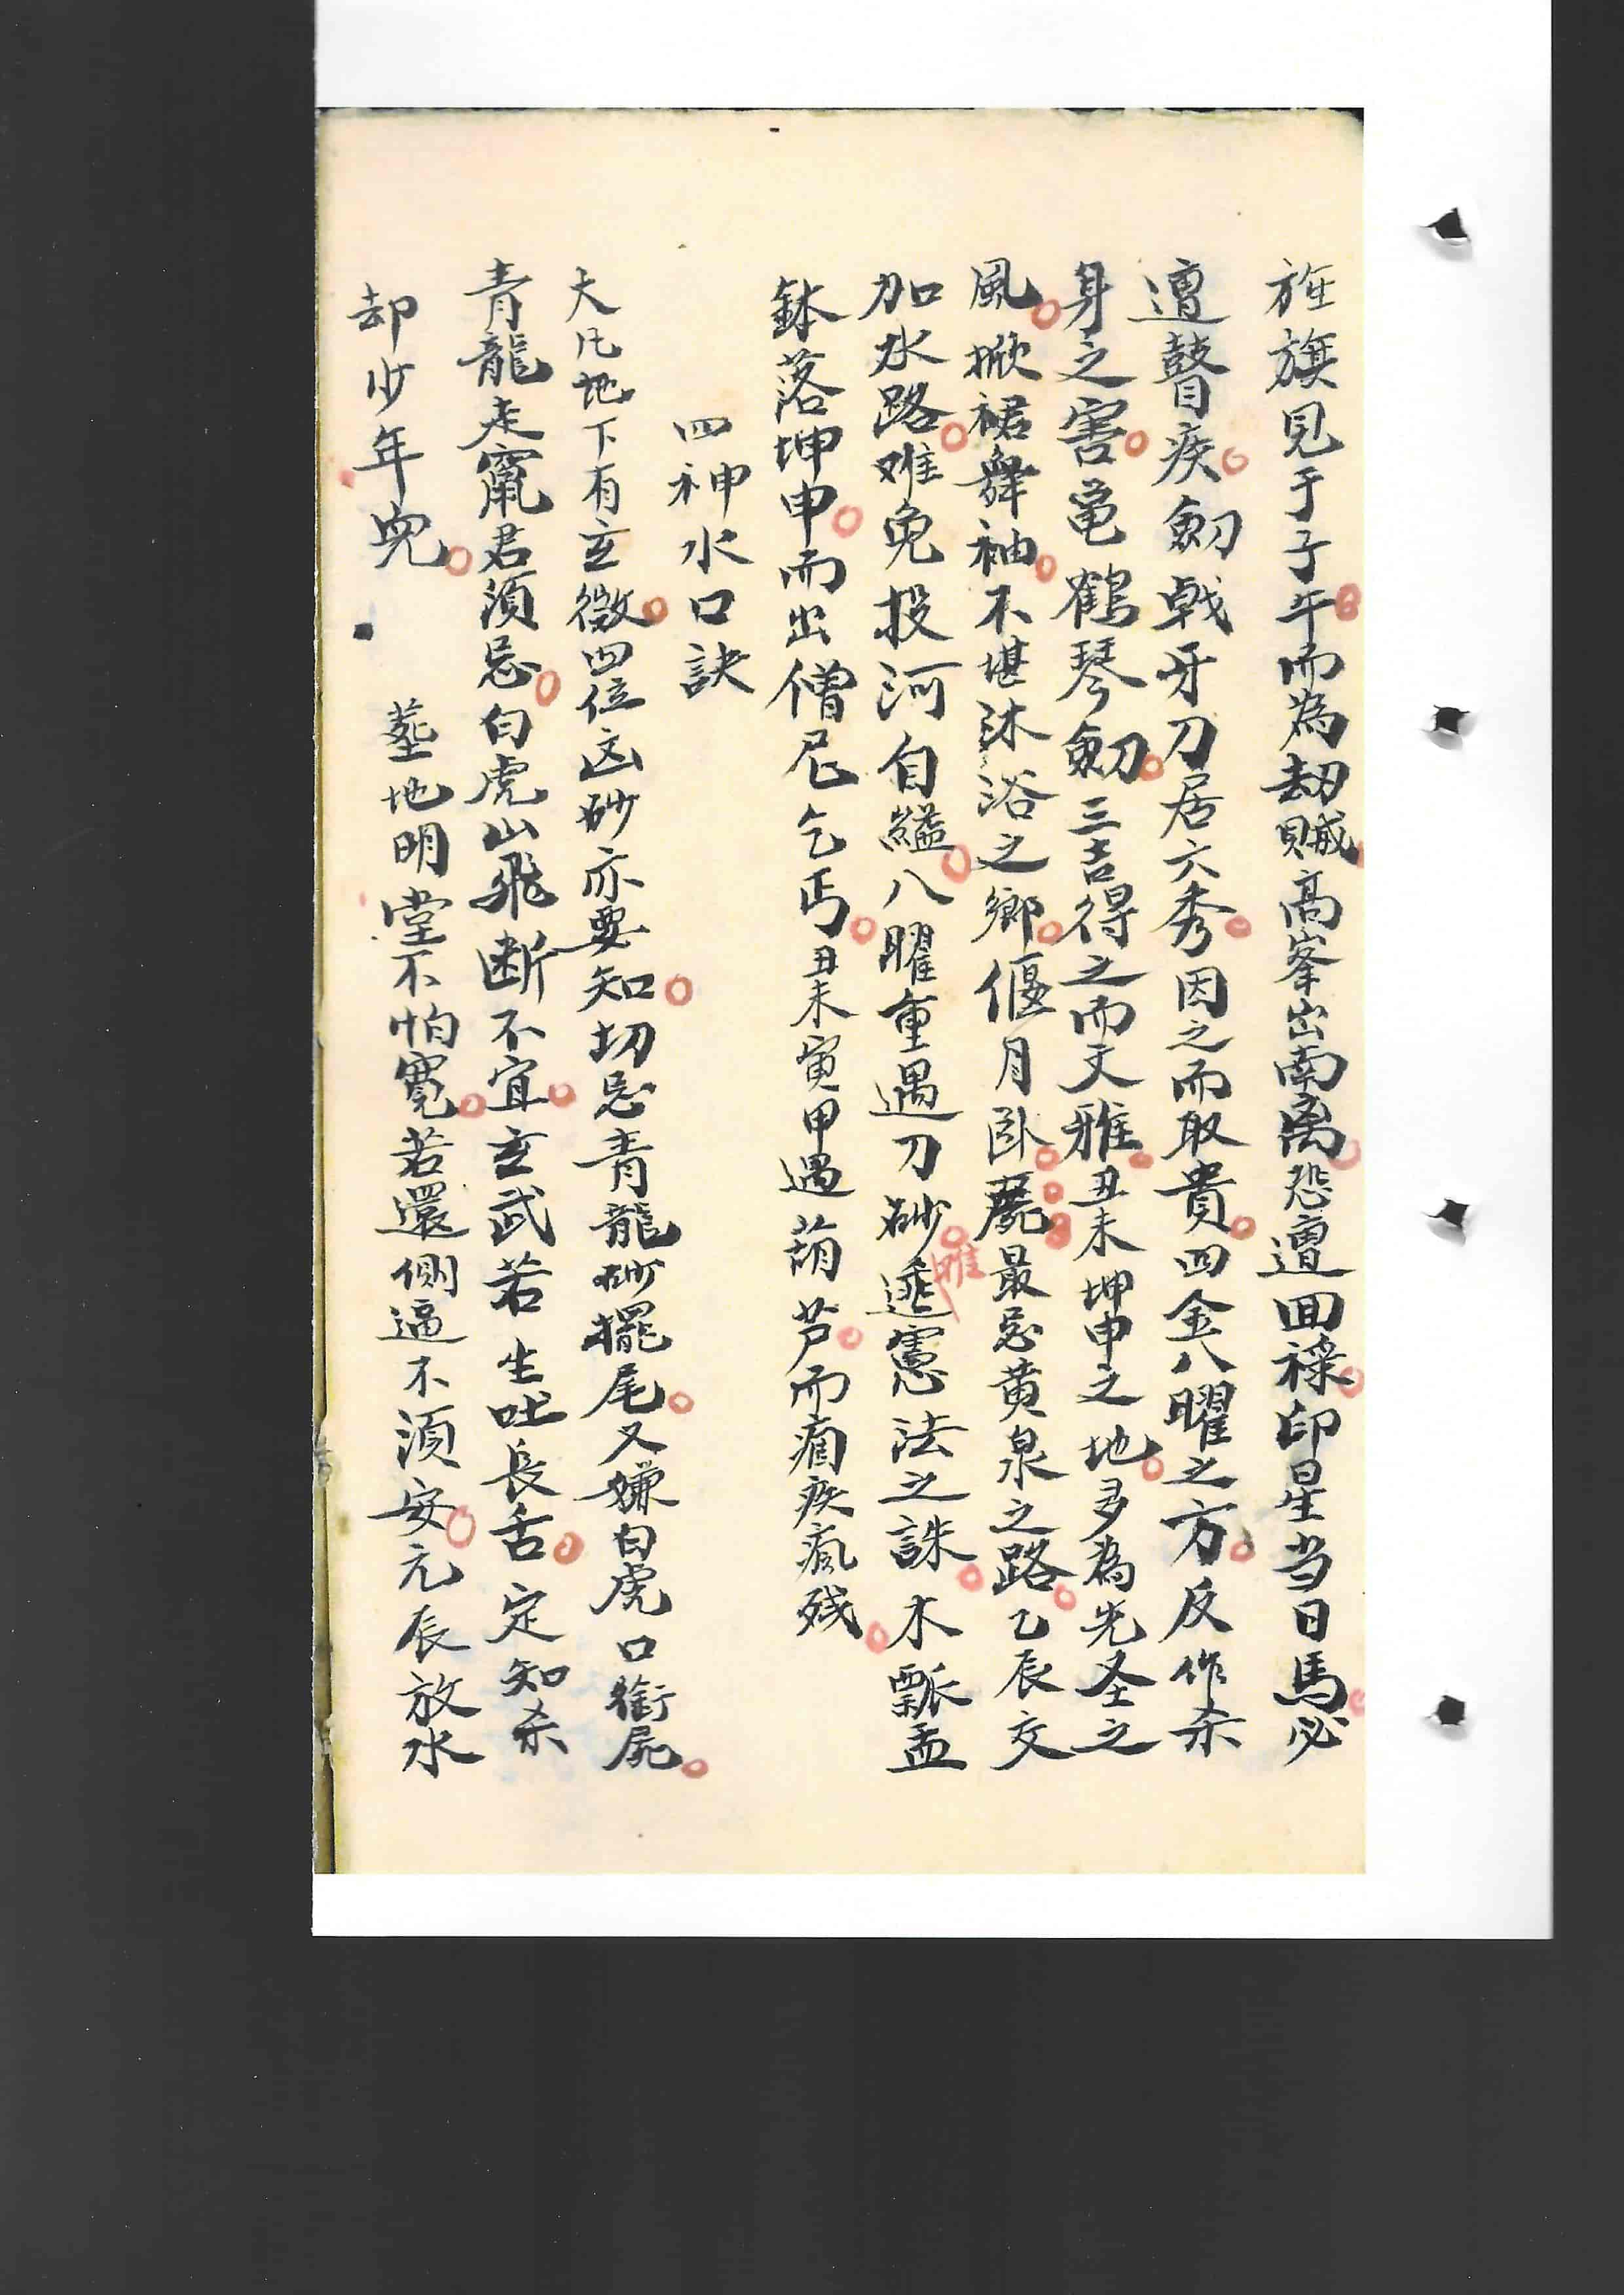 旌旗見于子午而為劫賊高峯出南离恐遭回祿印星当日馬必
遭瞽疾劍戟牙刀居六秀因之而取貴四金八曜之方反作杀
身之害龟鶴琴劍三吉得之而文雅丑未坤申之地多為先圣之
風掀裙舞袖不堪沐浴之鄉偃月臥屍最忌黄泉之路乙辰交
加水路难免投河自縊八曜重遇刀砂難逃憲法之誅木瓢盂
鉢落坤申而出僧尼乞丐丑未寅甲遇葫芦而痼疾瘋残
四神水口訣
大凡地下有玄微四位凶砂亦要知切忌青龍砂擺尾又嫌白虎口銜屍
青龍走竄君須忌白虎山飛断不宜玄武若生吐長舌定知杀
却少年兒
塟地明堂不怕寬若還側逼不須安元辰放水